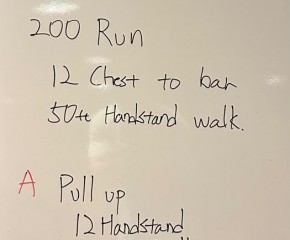 200 Run
12 Chest to bar
50ft Handstand walk.
A Pull up
12 Handstand